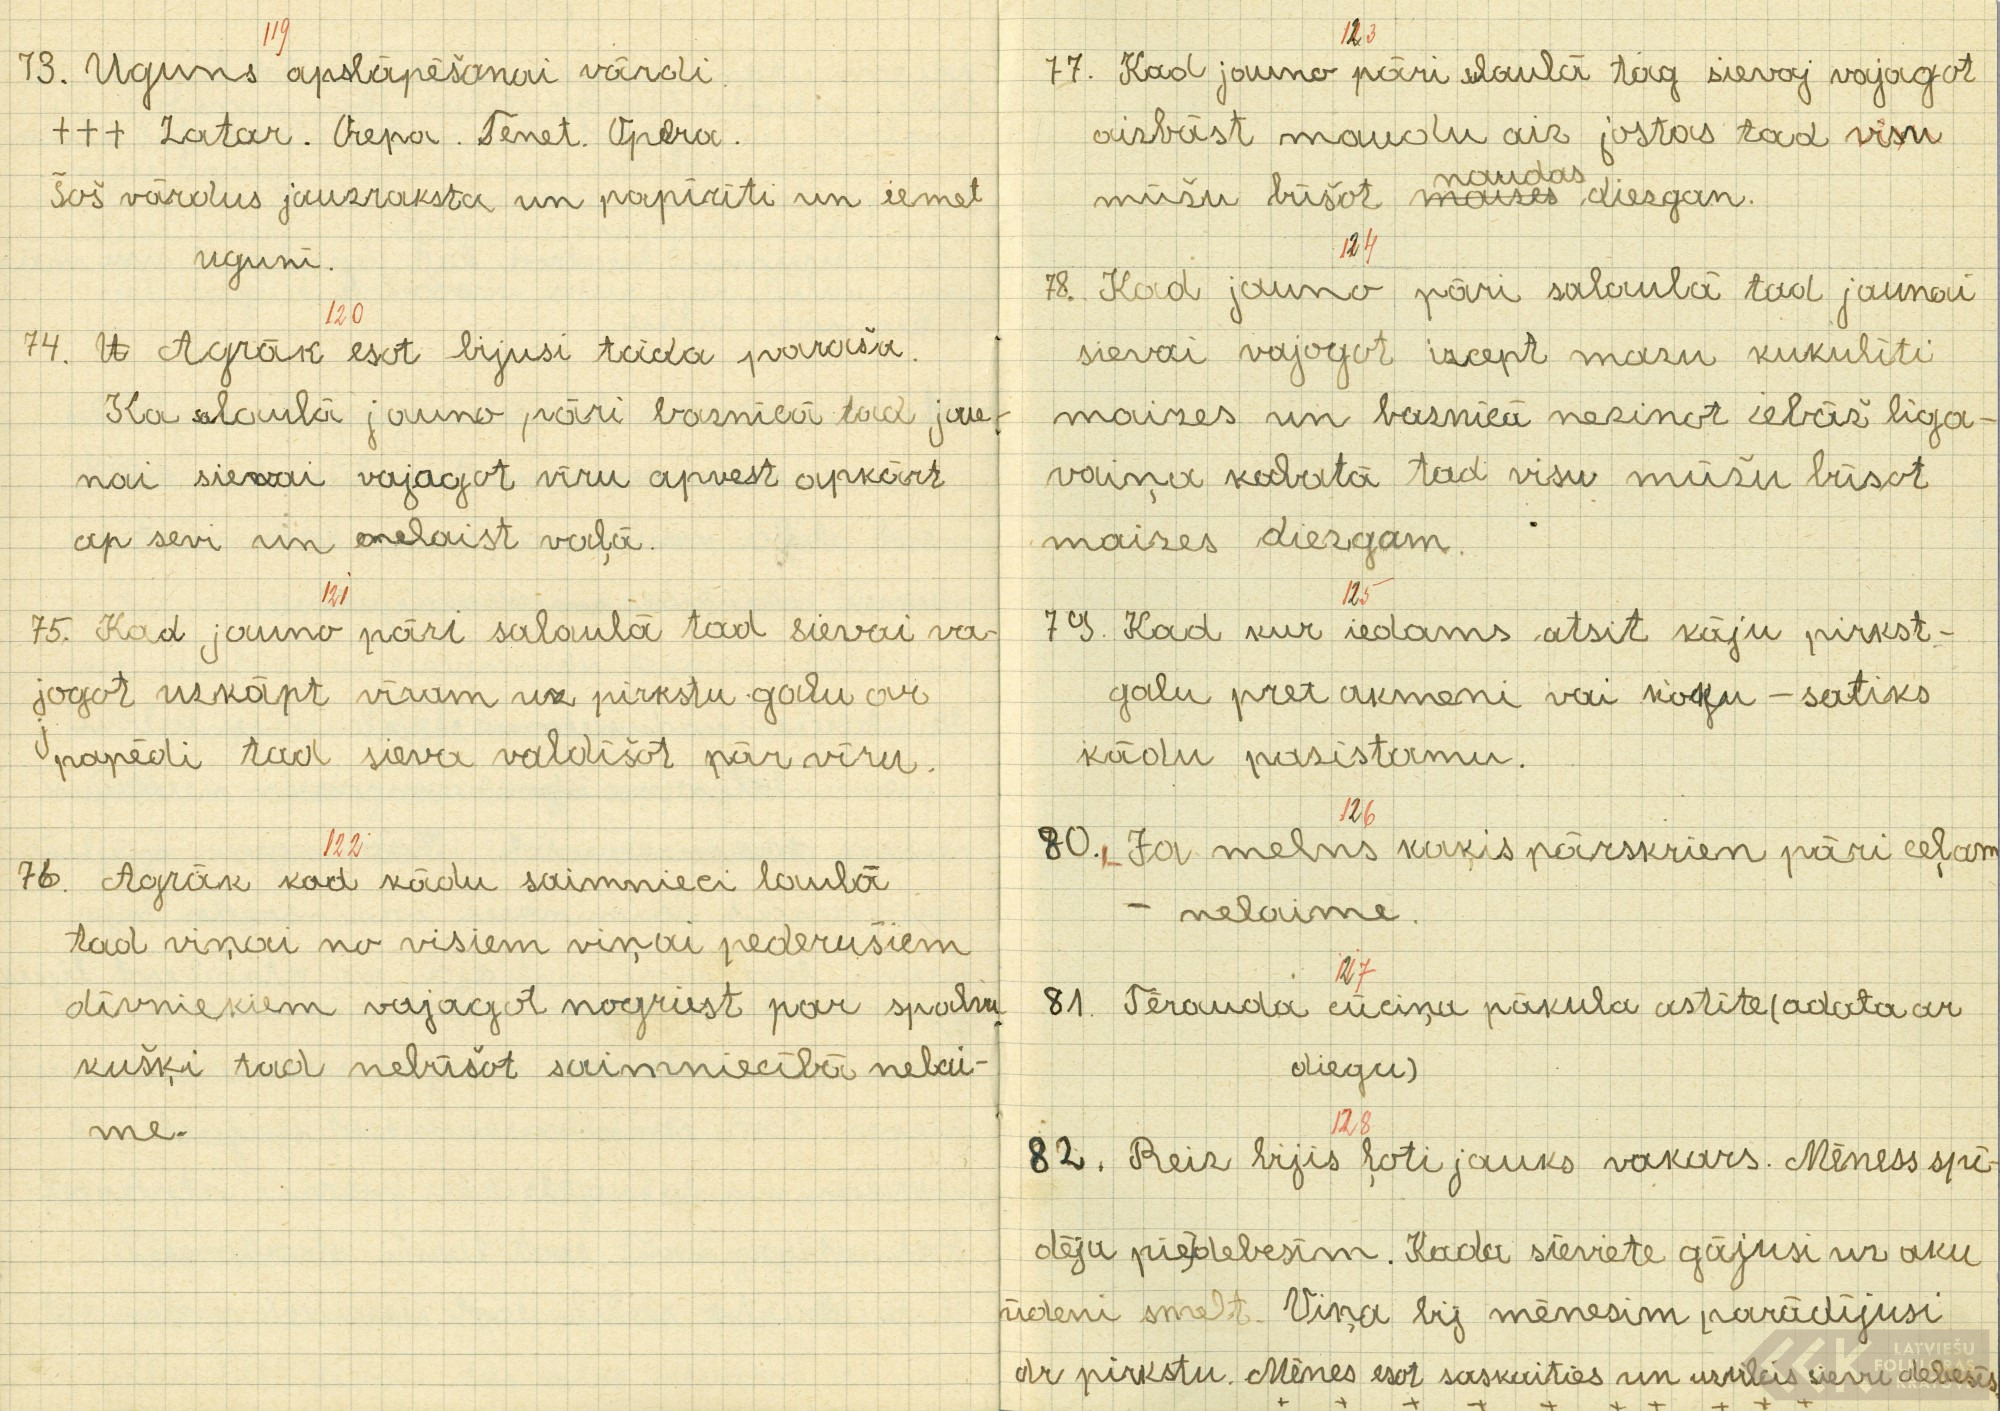 119
73. Uguns apslāpēšanai vārdi.
+++ Zatar. Orepa. Tenet. Opera.
Šoš vārdus jauzraksta un papīrīti un iemet
uguni.
120
74. Agrāk esot bijusi tāda paraša.
Ka salaulā jauno pāri baznīcā tad jau-
nai sievai vajagot vīru apvest apkārt
ap sevi un nelaist vaļā.
121
75. Kad jauno pāri salaulā tad sievai va-
jagot uzkāpt vīram uz pirkstu galu ar
papēdi tad sieva valdīšot pār vīru.
122
76. Agrāk kad kādu saimnieci laulā
tad viņai no visiem viņai pederušiem
dīvniekiem vajagot nogriest par spalvu
kušķi tad nebūšot saimniecībā nelai-
me.
123
77. Kad jauno pāri salaulā tag sievaj vajagot
aizbāst maudu aiz jostas tad visu
mūžu būšot maizes naudas diezgan.
124
78. Kad jauno pāri salaulā tad jaunai
sievai vajogot izcept mazu kukulīti
maizes un baznīcā nezinot iebāž līga-
vaiņa kabatā tad visu mūžu būsot
maizes diezgam.
125
79. Kad kur iedams atsit kāju pirkst-
galu pret akmeni vai koku – satiks
kādu pazīstamu.
126
80. Ja melns kaķis pārskrien pāri ceļam
– nelaime.
127
81. Tērauda cūciņa pakula astīte (adata ar
diegu)
128
82. Reiz bijis ļoti jauks vakars. Mēness spī-
dēja pie debesīm. Kāda sieviete gājusi uz aku
ūdeni smelt. Viņa bij mēnesim parādījusi
ar pirkstu. Mēnes esot saskaities un uzvilcis sievu debesīs.
+ + + + + + + + +
LATVIEŠU
FOLKLORAS
KRĀTUVE